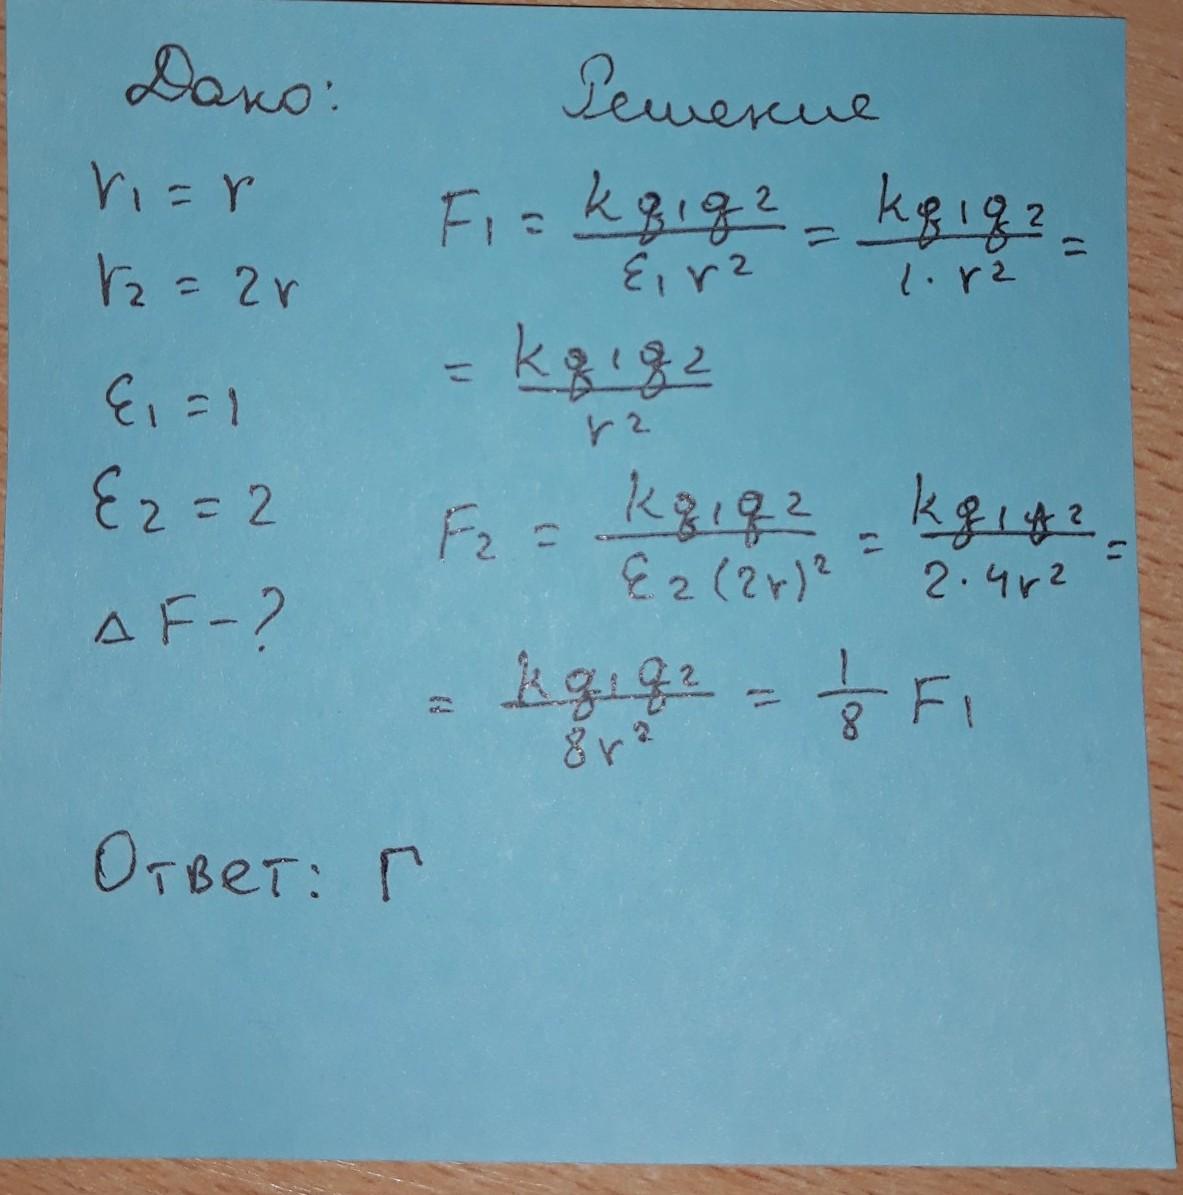 Дано:
r₁ = r
r₂ = 2r
ε₁ = 1
ε₂ = 2
△F-?
Решение
F₁ = kq₁q₂/ε₁r² = kq₁q₂/1·r² =
= kq₁q₂/r²
F₂ = kq₁q₂/ε₂(2r)² = kq₁q₂/2·4r² =
= kq₁q₂/8r² = 1/8 F₁
Ответ: Г